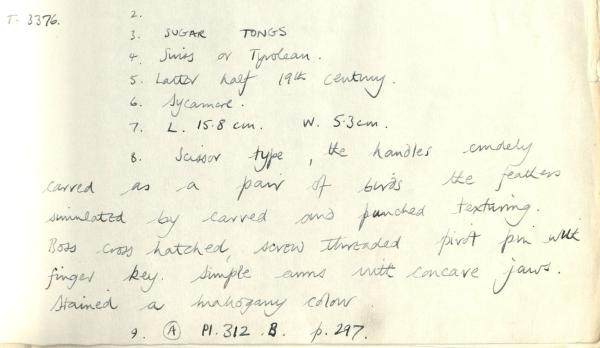 T. 3376.
2.
3. SUGAR TONGS
4. Swiss or Tyrolean.
5. Latter half 19th century.
6. Sycamore.
7. L. 15.8 cm. W. 5.3 cm.
8. Scissor type, the handles crudely
carved as a pair of birds the feathers
simulated by carved and punched texturing.
Boss cross hatched, screw threaded pivot pin with
finger key. Simple arms with concave jaws.
Stained a mahogany colour
9. (A) Pl. 312. B. p. 297.